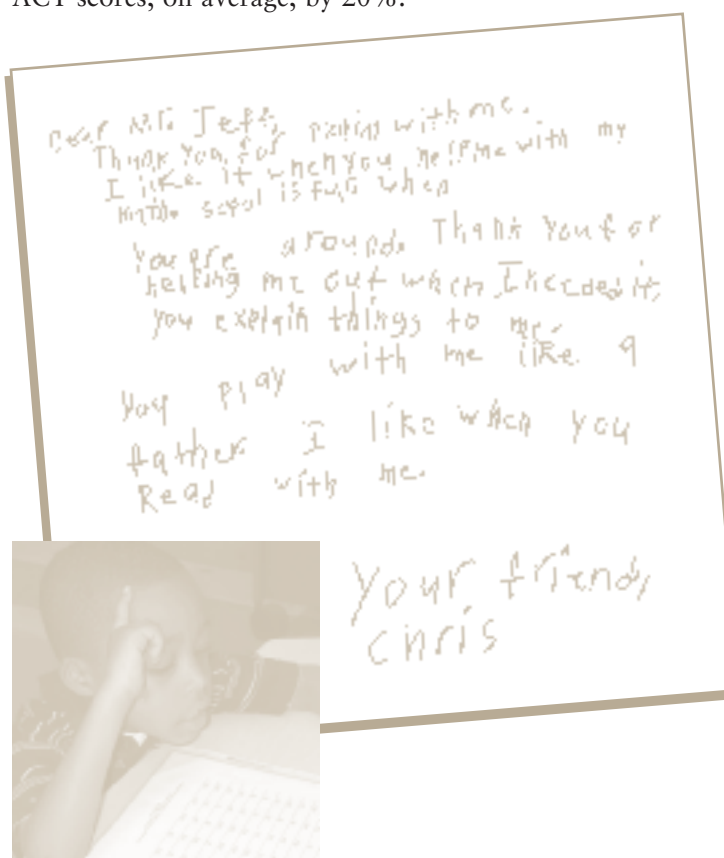 ACT scores, on average, by 20%.
Dear Mr. Jeff,
Thank you for with me.
I like it when you help me with my
math. scool is fun when
you are around. Thank you for
helping me out when I needed it,
you explain things to me.
you play with me like a
father I like when you
Read with me.
Your friend,
Chris